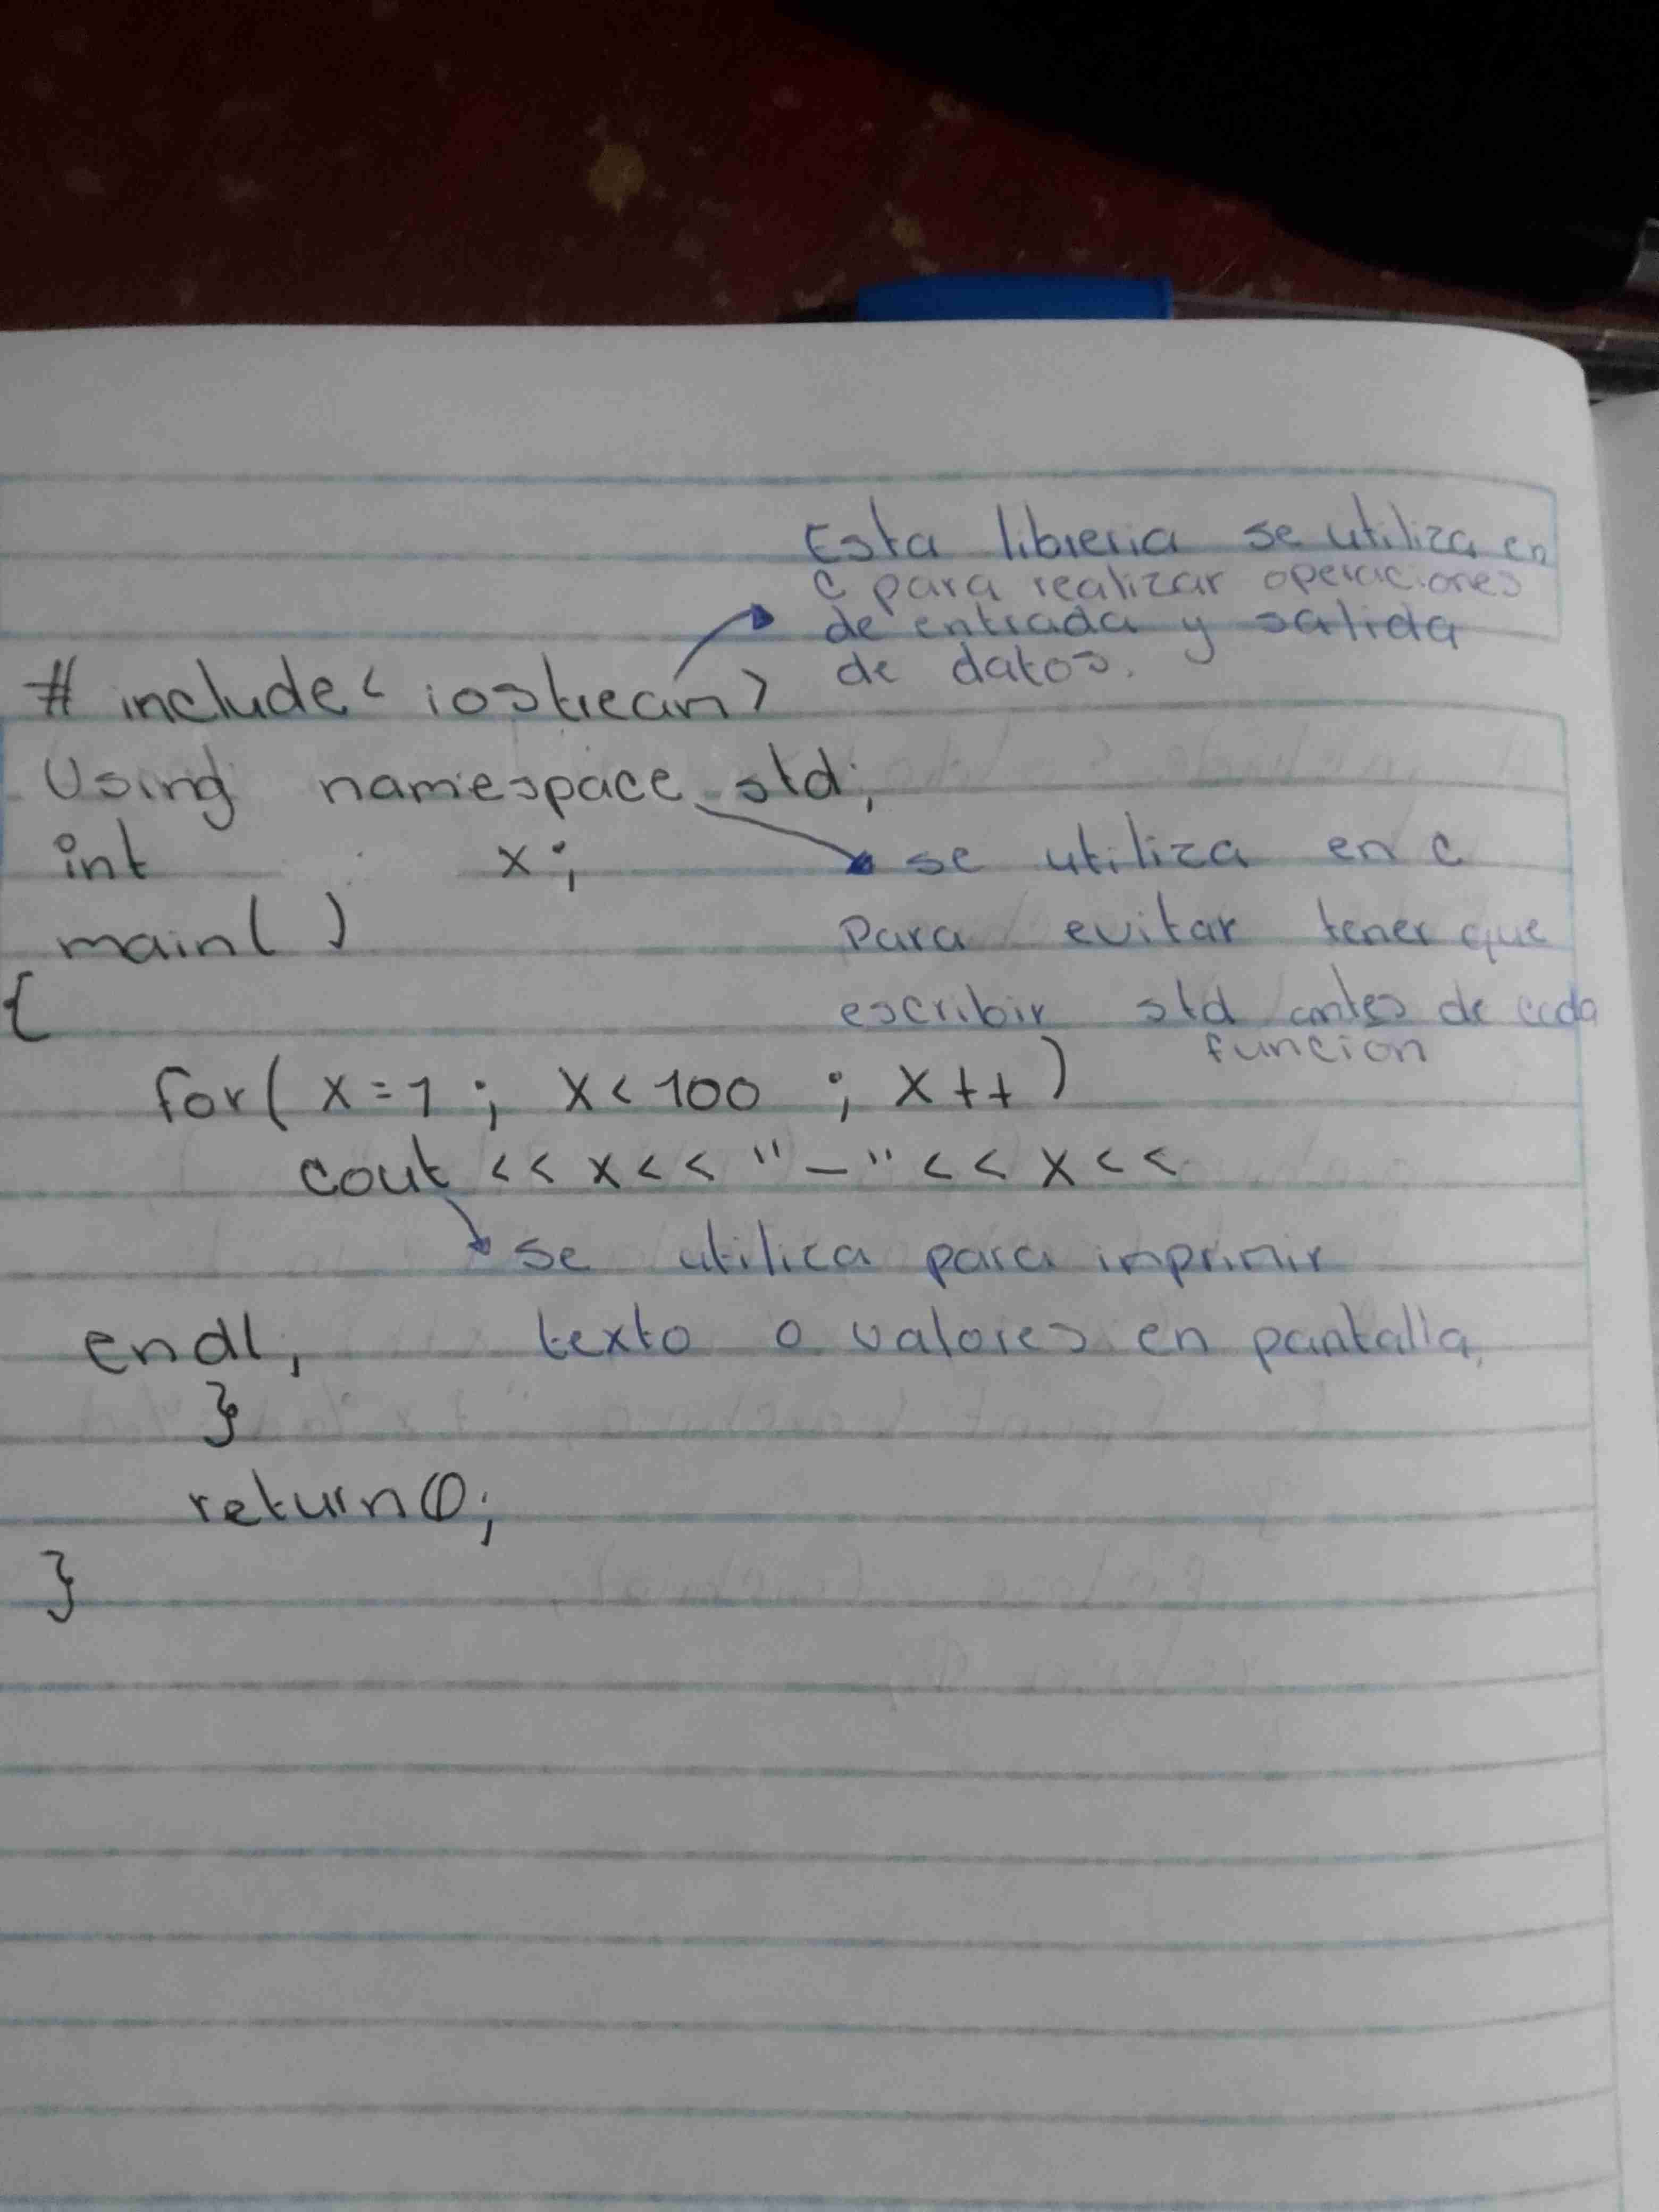 Esta libreria se utiliza en
c para realizar operaciones
de entrada y salida
de datos.
# include < iostrean>
Using namespace std;
int x;
se utiliza en c
main( )
Para evitar tener que
{
escribir std antes de cada
funcion
for( x=1 ; x<100 ; x++ )
cout << x<< "-" << x<<
se utilica para imprimir
endl,
texto o valores en pantalla,
}
return 0;
}